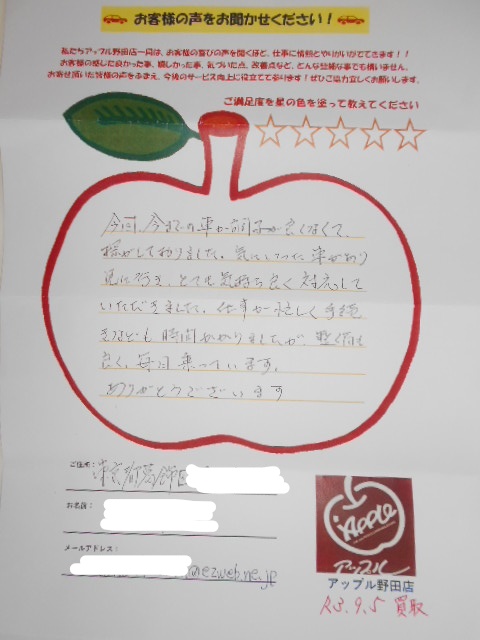 お客様の声をお聞かせください！
私たちアップル野田店一同は、お客様の喜びの声を聞くほど、仕事に情熱とやりがいがでてきます！！
お客様の感じた良かった事、嬉しかった事、気づいた点、改善点など、どんな些細な事でも構いません。
お寄せ頂いた皆様の声をふまえ、今後のサービス向上に役立てて参ります！ぜひご協力宜しくお願いします。
ご満足度を星の色を塗って教えてください
今回、今までの車が調子が良くなくて、
探がしておりました。気になった車があり
見に行き、とても気持ち良く対応して
いただきました。仕事が忙しく手続
きなども時間かかりましたが、
良く、毎日乗っています。
ありがとうございます
ご住所：東京都葛飾区
お名前：
メールアドレス：
@ezweb.ne.jp
Apple
アップル
アップル野田店
R3.9.5 買取